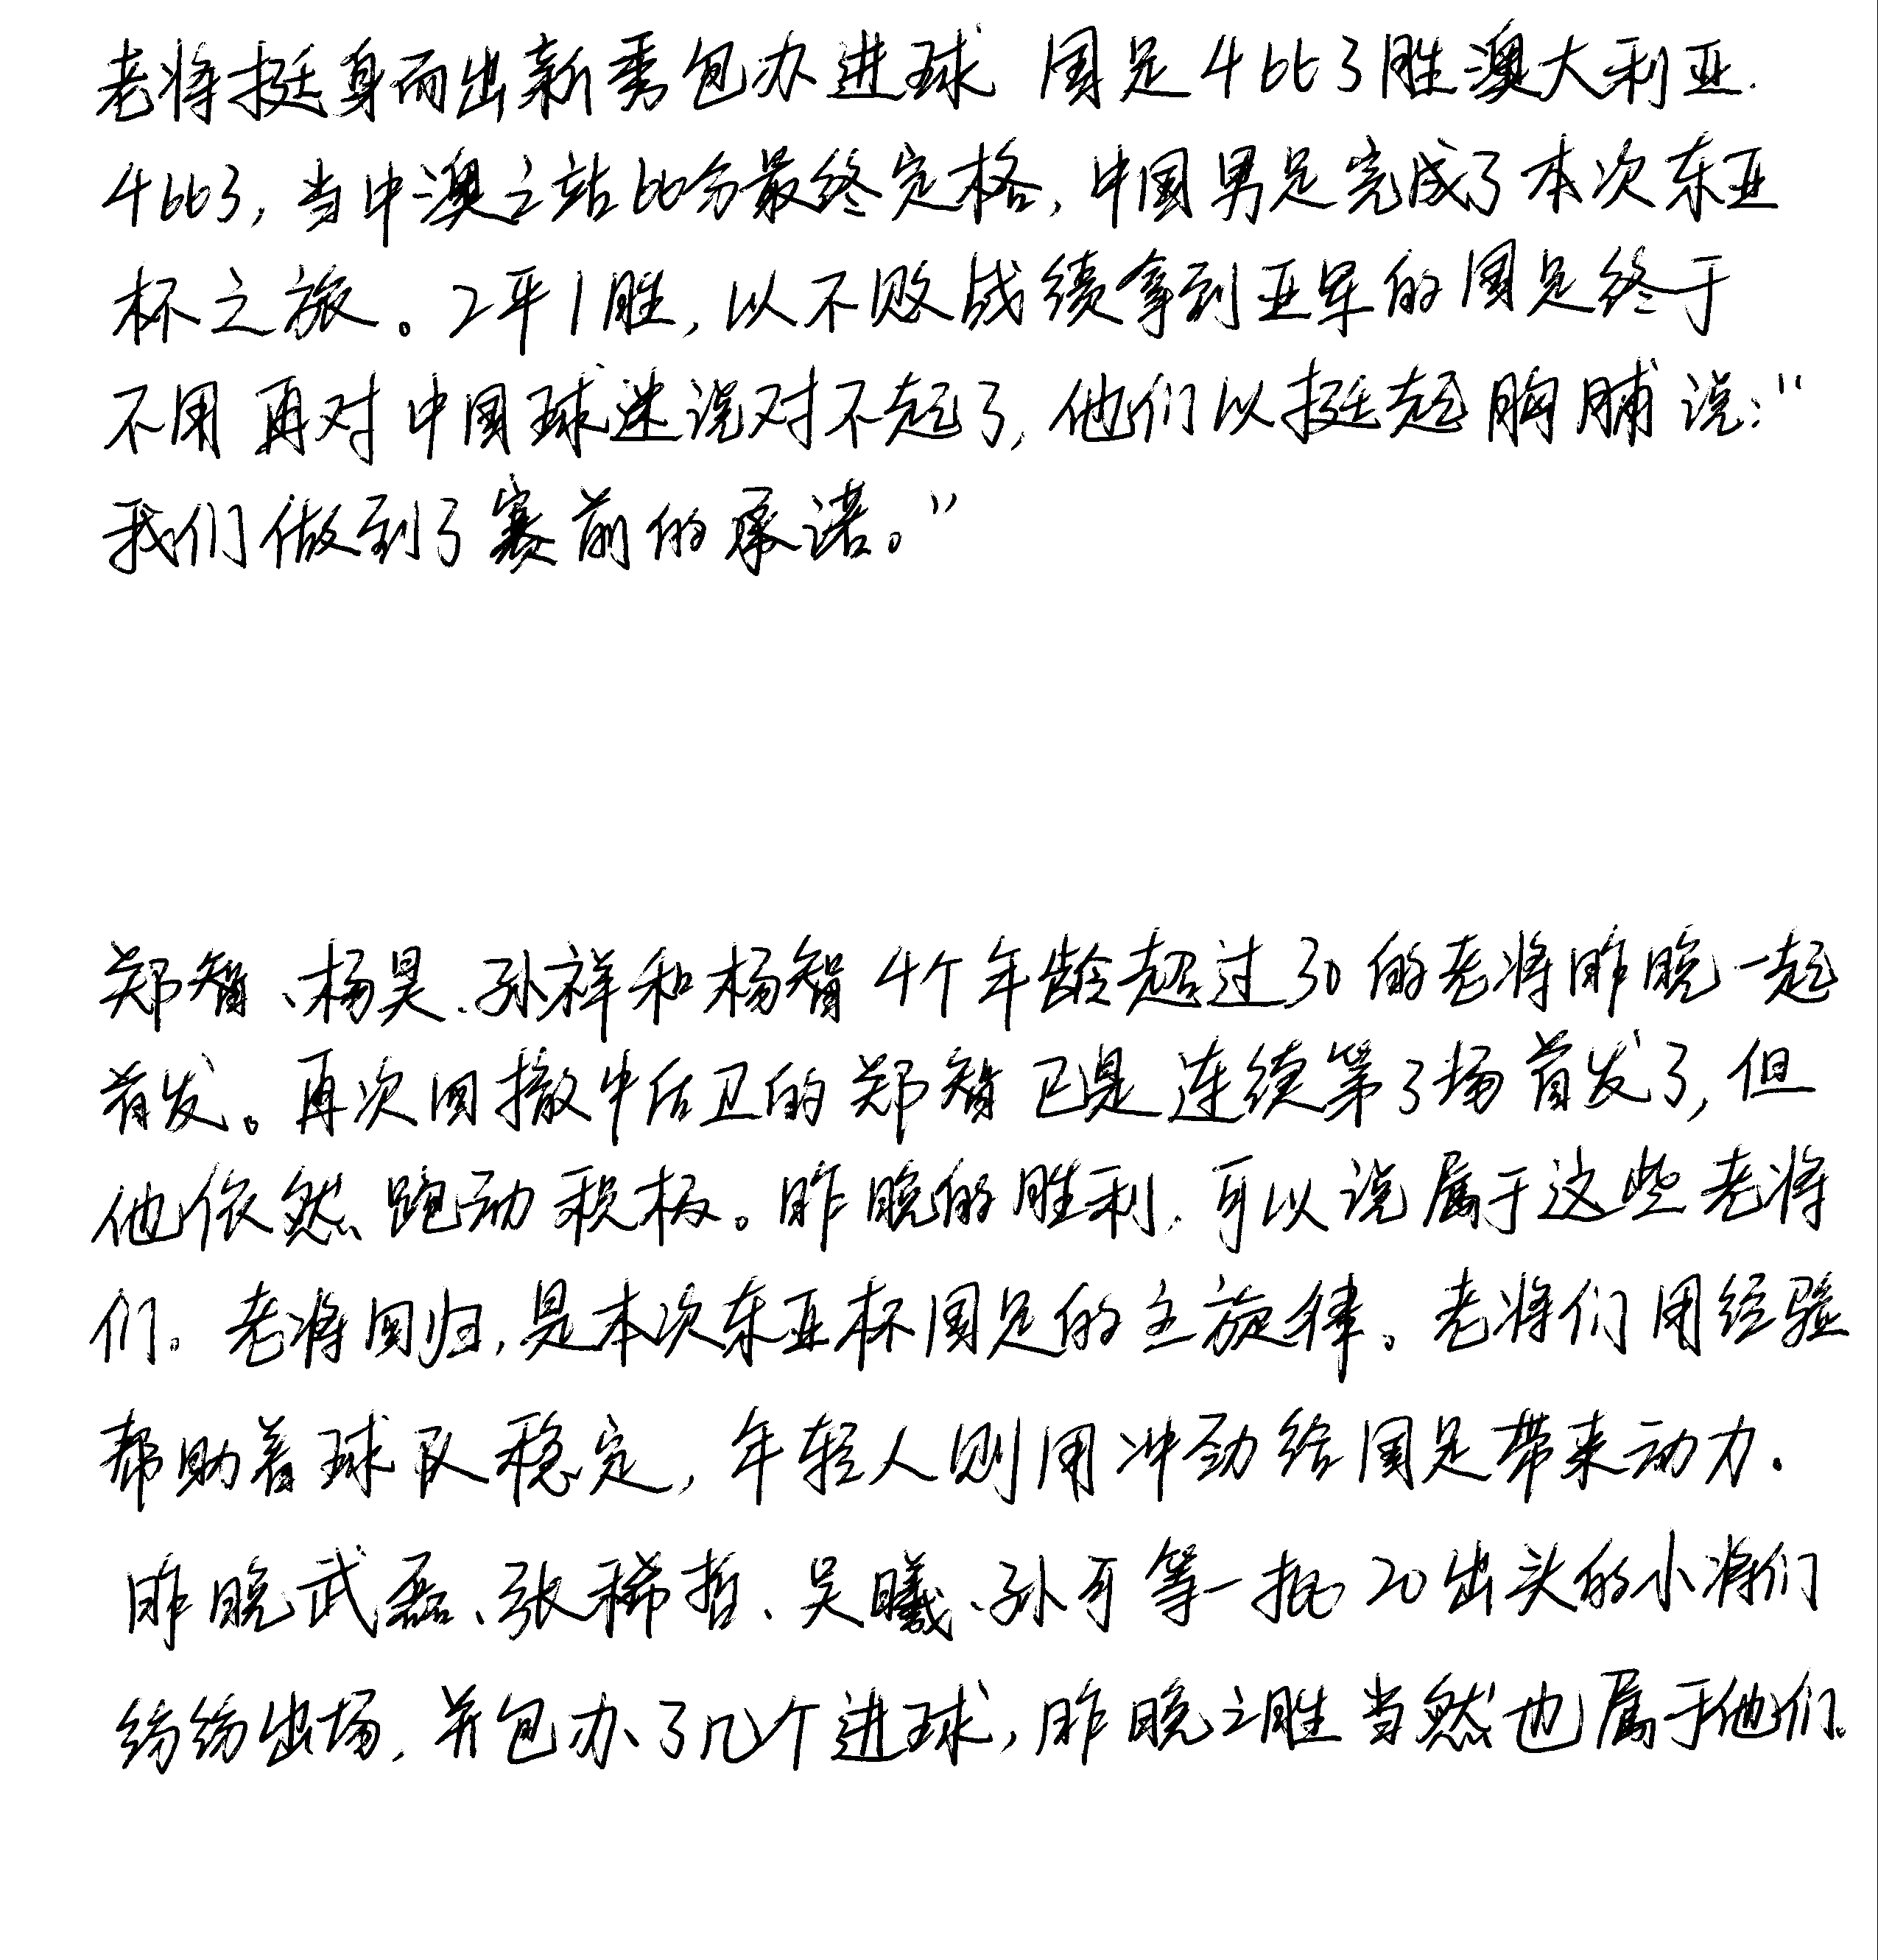 老将挺身而出新秀包办进球 国足4比3胜澳大利亚.
4比3,当中澳之站比分最终定格,中国男足完成了本次东亚
杯之旅。2平1胜,以不败战绩拿到亚军的国足终于
不用再对中国球迷说对不起了,他们以挺起胸脯说:"
我们做到了赛前的承诺。"
郑智、杨昊、孙祥和杨智4个年龄超过30的老将昨晚一起
首发。再次回撤中后卫的郑智已是连续第3场首发了,但
他依然跑动积极。昨晚的胜利,可以说属于这些老将
们。老将回归,是本次东亚杯国足的主旋律。老将们用经验
帮助着球队稳定,年轻人则用冲劲给国足带来动力.
昨晚武磊、张稀哲、吴曦、孙可等一批20出头的小将们
纷纷出场,并包办了几个进球,昨晚之胜当然也属于他们。